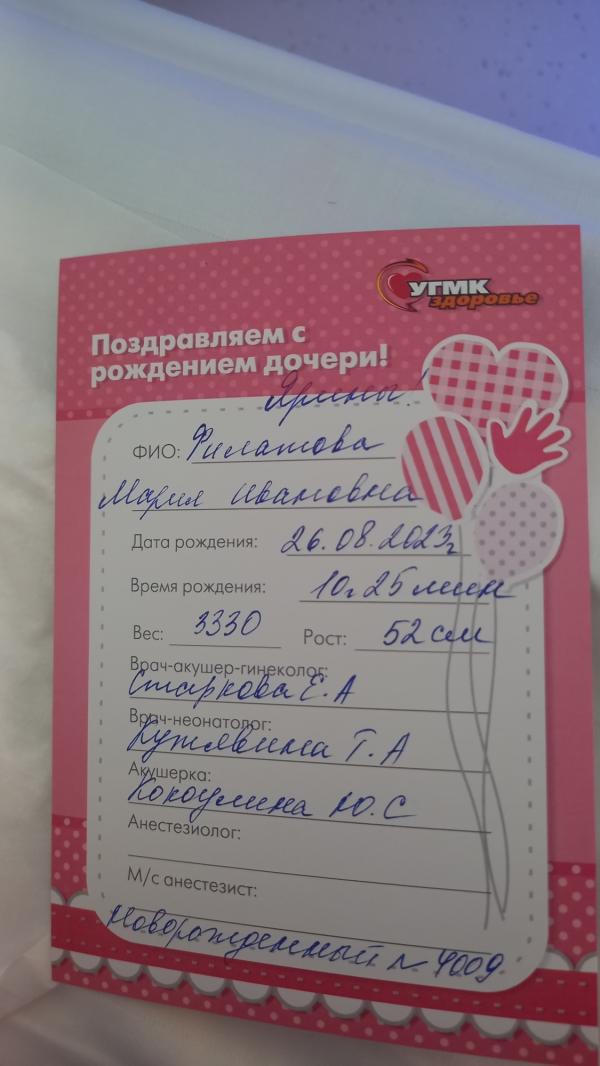 УГМК
здоровье
Поздравляем с
рождением дочери!
Ярины!
ФИО: Филатова
Мария Ивановна
Дата рождения: 26.08.2023г
Время рождения: 10ч 25 мин
Вес: 3330 Рост: 52 см
Врач-акушер-гинеколог:
Старкова Е.А
Врач-неонатолог:
Кужявина Т.А
Акушерка:
Кокоулина Ю.С
Анестезиолог:
М/с анестезист:
Новорожденный № 4009